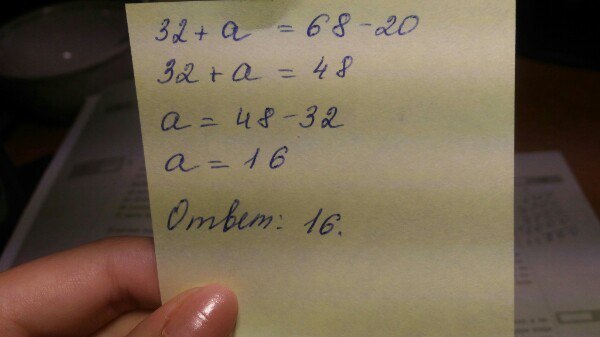 32 + a = 68 - 20
32 + a = 48
a = 48 - 32
a = 16
Ответ: 16.